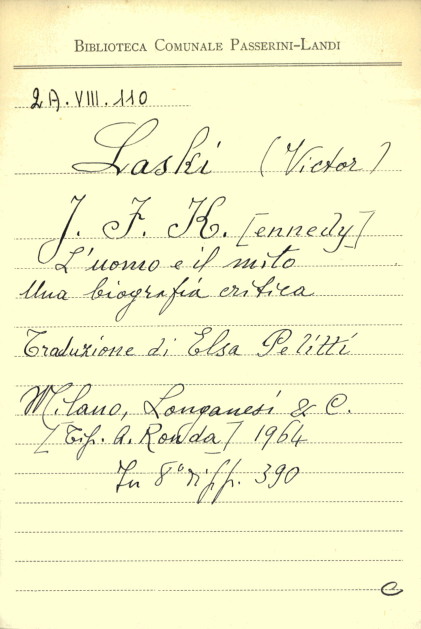 BIBLIOTECA COMUNALE PASSERINI-LANDI
2A.VIII.110
Laski (Victor)
J. F. K. [ennedy]
L'uomo e il mito
Una biografia critica
Traduzione di Elsa Pelitti
Milano, Longanesi & C.
[Tip. A. Ronda] 1964
In 8° di pp. 390
C